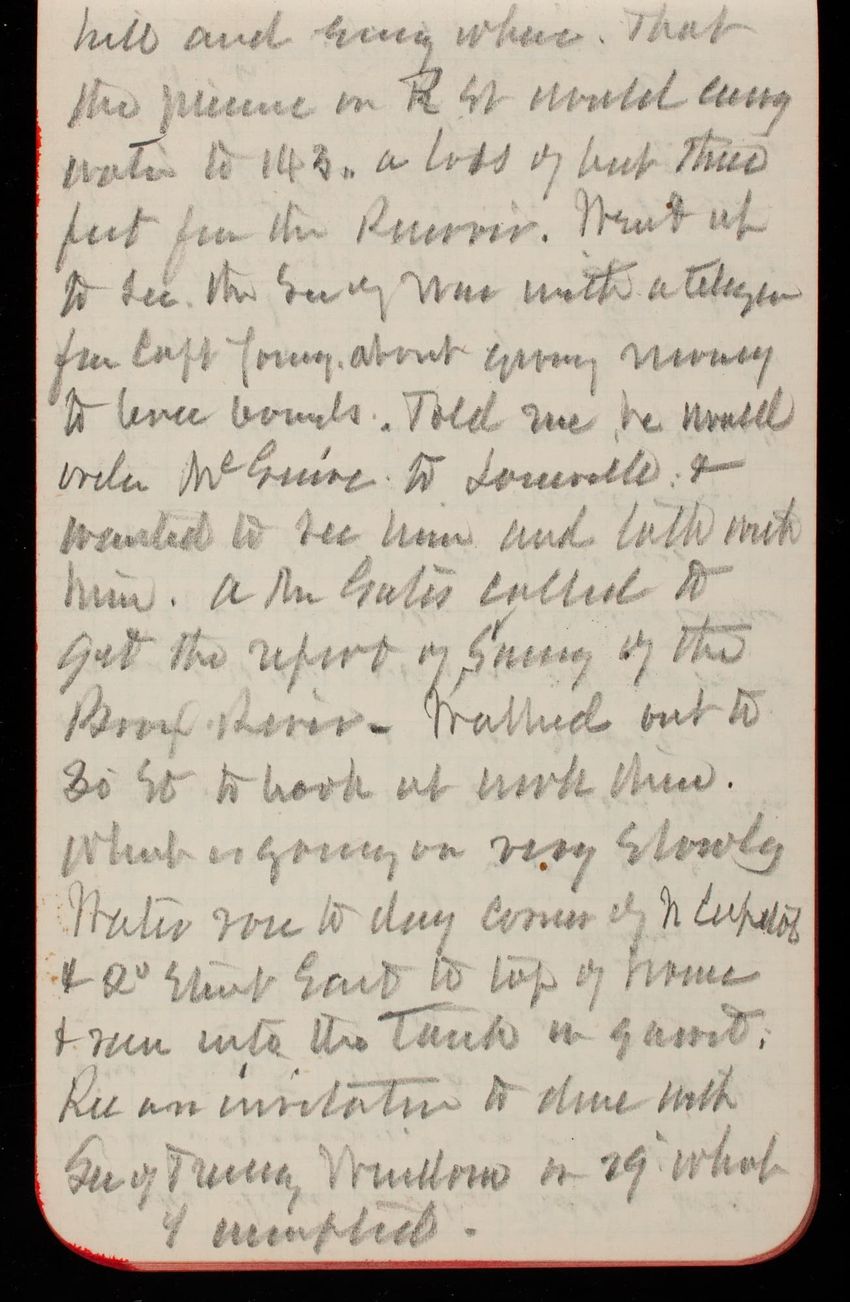 hill and every where. That
the pressure on R St would carry
water to 143. a loss of but three
feet from the Reservoir. Went up
to see the Sec of War with a telegram
from Capt Young about giving money
to levee boards. Told me he would
order McGuire to Louisville &
wanted to see him and talk with
him. A Mr Gates called to
get the report of Survey of the
Bronx River - Walked out to
St to look at work there.
What is going on very slowly
Water rose to day corner of N Capitol
& St East to top of house
& ran into the Tank in garret.
Rec an invitation to dine with
Sec of Treasy Windom on 29 which
I accepted -